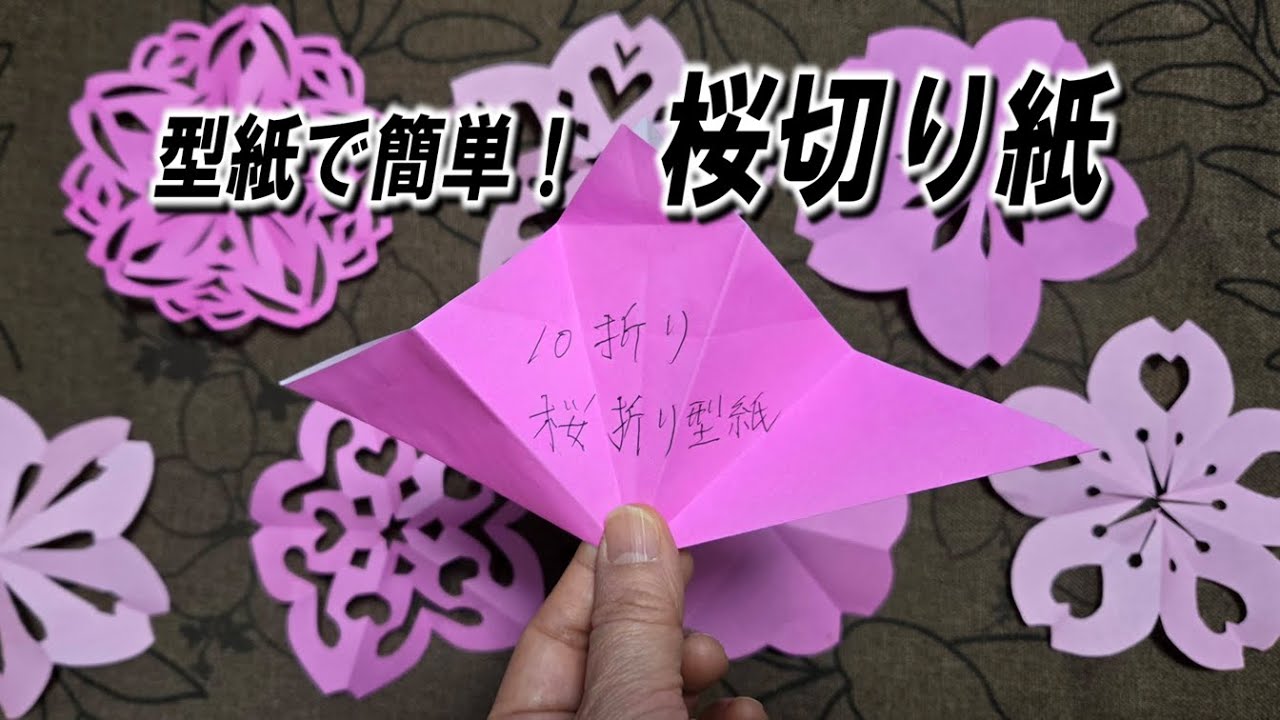 型紙で簡単！ 桜切り紙
10折り
桜折り型紙